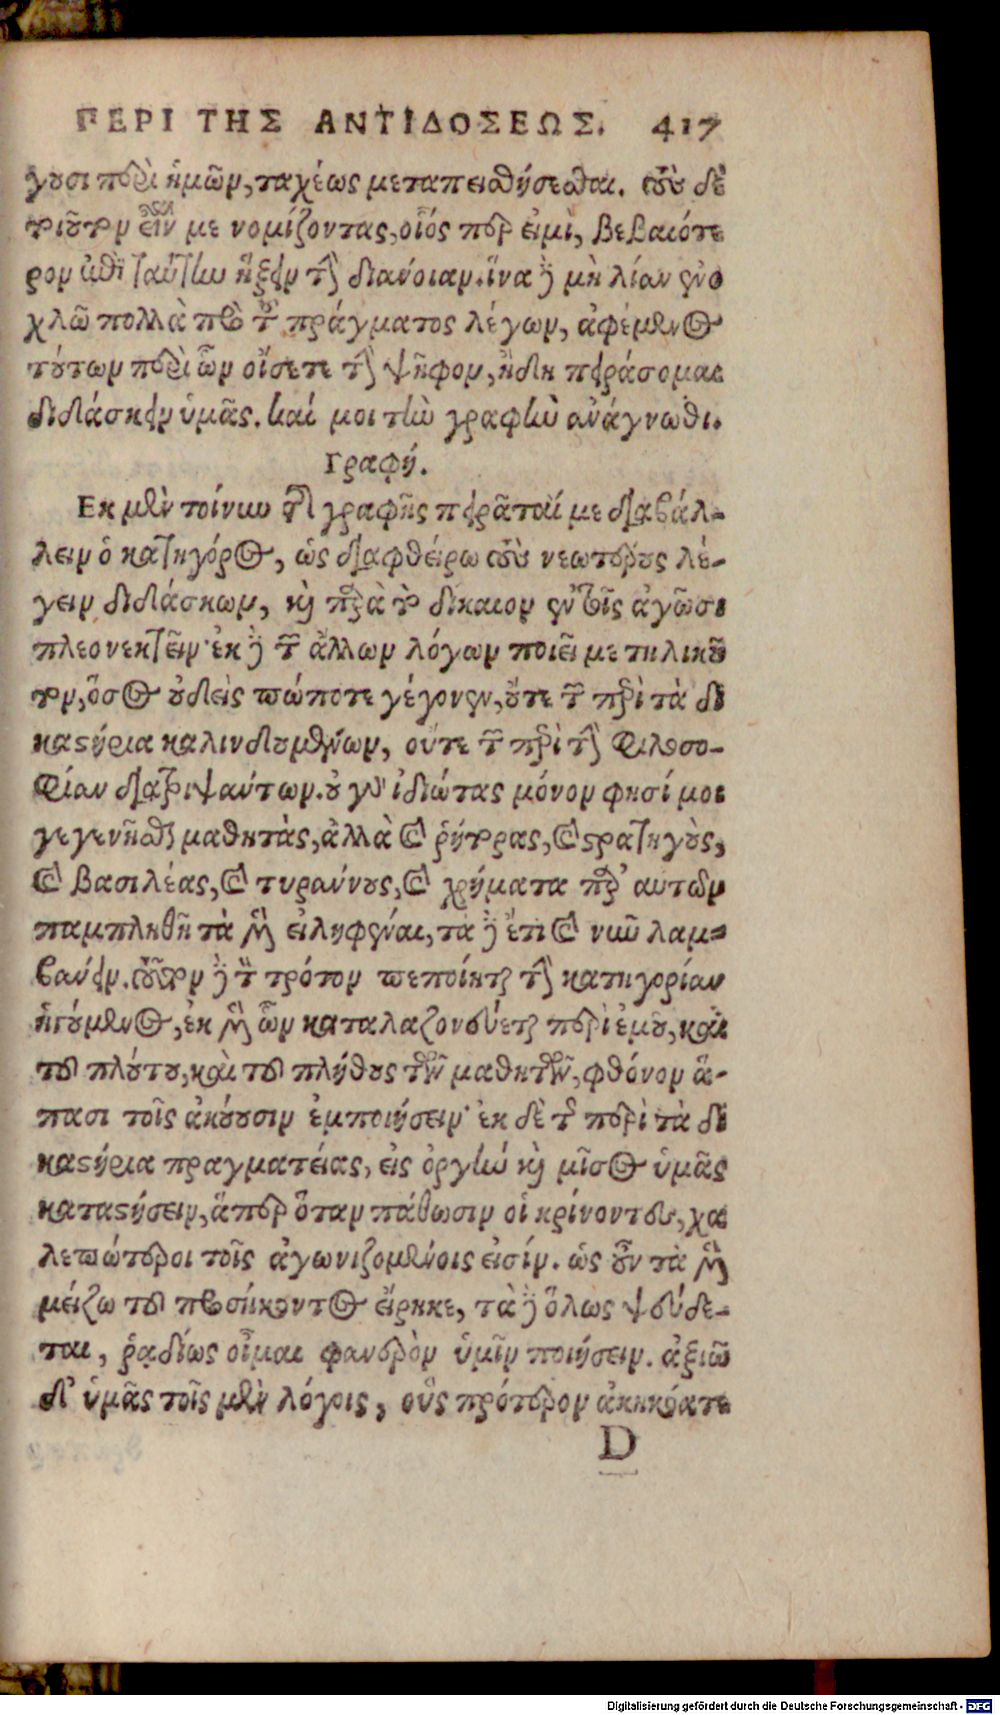 ΠΕΡΙ ΤΗΣ ΑΝΤΙΔΟΣΕΩΣ. 417
γουσι περὶ ἡμῶν, ταχέως μεταπεισθήσεσθαι. τοὺς δὲ
τοιοῦτον εἶναι με νομίζοντας, οἷός περ εἰμὶ, βεβαιότε
ρον ἔτι ταύτην ἥξειν τὴν διάνοιαν. ἵνα δὲ μὴ λίαν ἐνο
χλῶ πολλὰ πρὸ τοῦ πράγματος λέγων, ἀφέμενος
τούτων περὶ ὧν οἴσετε τὴν ψῆφον, ἤδη πειράσομαι
διδάσκειν ὑμᾶς. καί μοι τὴν γραφὴν ἀνάγνωθι.
Γραφή.
Εκ μὲν τοίνυν τῆς γραφῆς πειρᾶταί με διαβάλ-
λειν ὁ κατήγορος, ὡς διαφθείρω τοὺς νεωτέρους λέ-
γειν διδάσκων, καὶ παρὰ τὸ δίκαιον ἐν τοῖς ἀγῶσι
πλεονεκτεῖν· ἐκ δὲ τῶν ἄλλων λόγων ποιεῖ με τηλικοῦ
τον, ὅσος οὐδεὶς πώποτε γέγονεν, οὔτε τῶν περὶ τὰ δι
καστήρια καλινδουμένων, οὔτε τῶν περὶ τὴν φιλοσο-
φίαν διατριψάντων. οὐ γὰρ ἰδιώτας μόνον φησί μοι
γεγενῆσθαι μαθητὰς, ἀλλὰ καὶ ῥήτορας, καὶ στρατηγοὺς,
καὶ βασιλέας, καὶ τυράννους, καὶ χρήματα παρ' αὐτῶν
παμπληθῆ τὰ μὲν εἰληφέναι, τὰ δὲ ἔτι καὶ νῦν λαμ-
βάνειν. τοῦτον δὲ τὸν τρόπον πεποίηται τὴν κατηγορίαν
ἡγούμενος, ἐκ μὲν ὧν καταλαζονεύεται περὶ ἐμοῦ, καὶ
τοῦ πλούτου, καὶ τοῦ πλήθους τῶν μαθητῶν, φθόνον ἅ-
πασι τοῖς ἀκούουσιν ἐμποιήσειν· ἐκ δὲ τῆς περὶ τὰ δι
καστήρια πραγματείας, εἰς ὀργὴν καὶ μῖσος ὑμᾶς
καταστήσειν, ἅπερ ὅταν πάθωσιν οἱ κρίνοντες, χα
λεπώτεροι τοῖς ἀγωνιζομένοις εἰσίν. ὡς οὖν τὰ μὲν
μείζω τοῦ προσήκοντος εἴρηκε, τὰ δὲ ὅλως ψεύδε-
ται, ῥᾳδίως οἶμαι φανερὸν ὑμῖν ποιήσειν. ἀξιῶ
δ' ὑμᾶς τοῖς μὲν λόγοις, οὓς πρότερον ἀκηκόατε
D
Digitalisierung gefördert durch die Deutsche Forschungsgemeinschaft - DFG